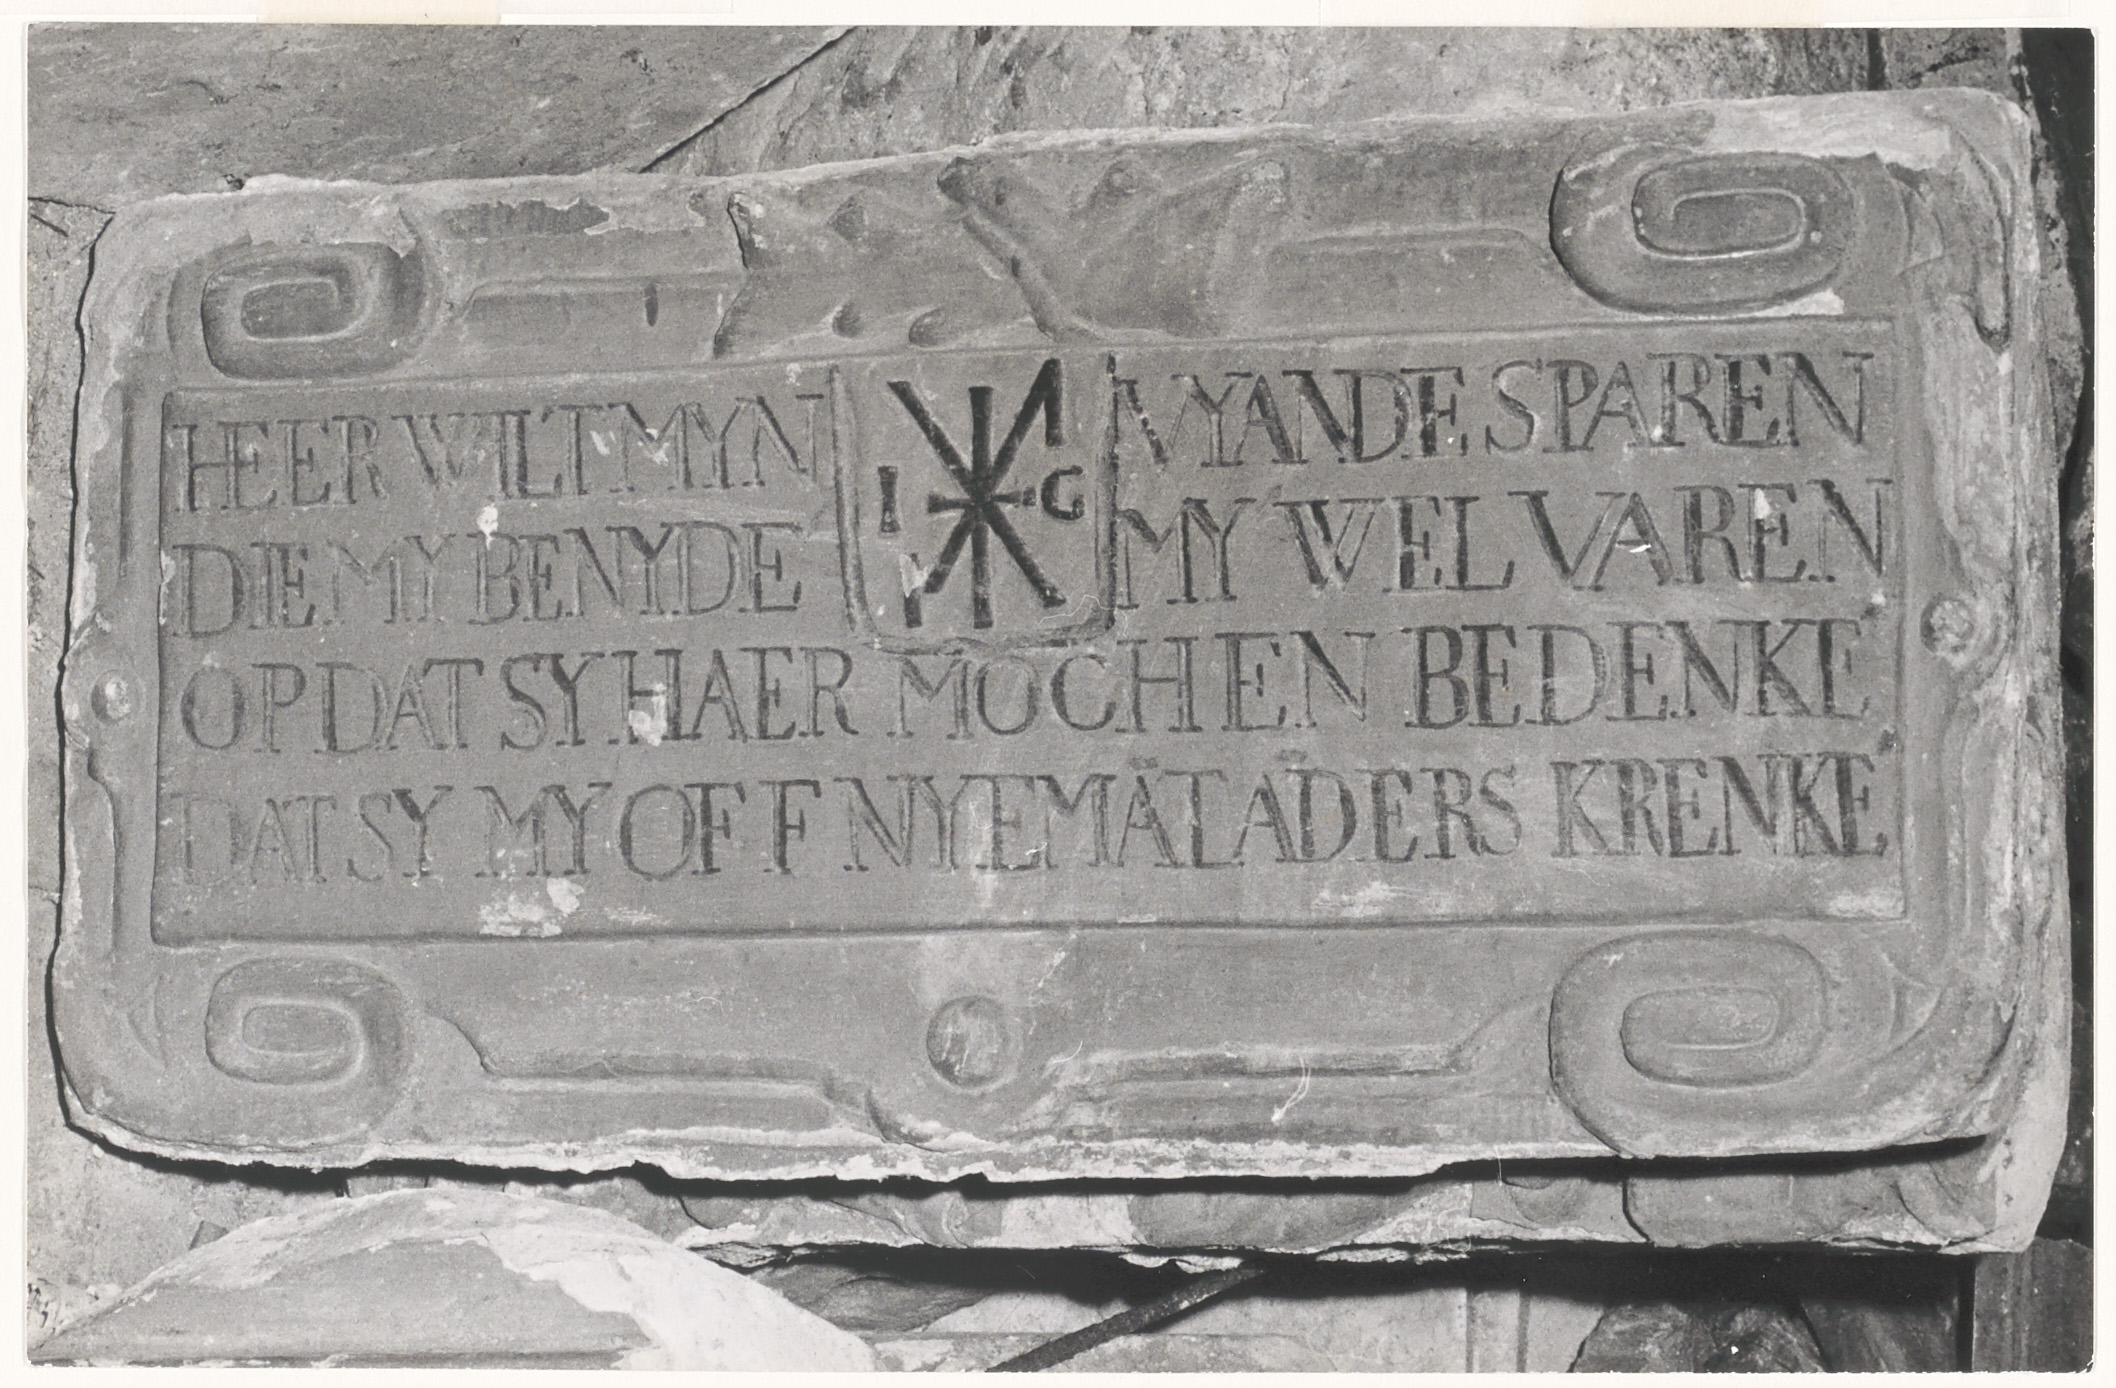 HEER WILT MYN VYANDE SPAREN
DIE MY BENYDE I G MY WEL VAREN
OPDAT SY HAER MOCHEN BEDENKE
DAT SY MY OFF NYEMÄT ÄDERS KRENKE